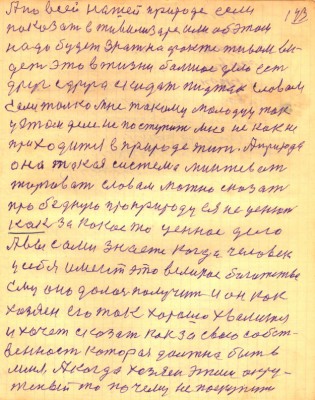 143
А по всей нашей природе если
показат в тивилизаре или об этом
надо будет зрат на факте живом ви-
дет это в жизни балшое дело ест
друг с друга сидат пиджак словом
Если толко мне такому молодцу так
у этом деле не поступит мися не как не
приходится в природе жит. А природа
она такая система
словам можно сказат
про бедную про природу ея не ценют
как за какое то ценное дело
А вы сами знаете когда человек
у себя имеет это великое богатства
ему оно далося получит и он как
хозяен его так хорошо хвалится
и хочет сказат как за свою собст-
венност которая должна быт в
мися А когда хозяен этим окру-
то почему не поступит